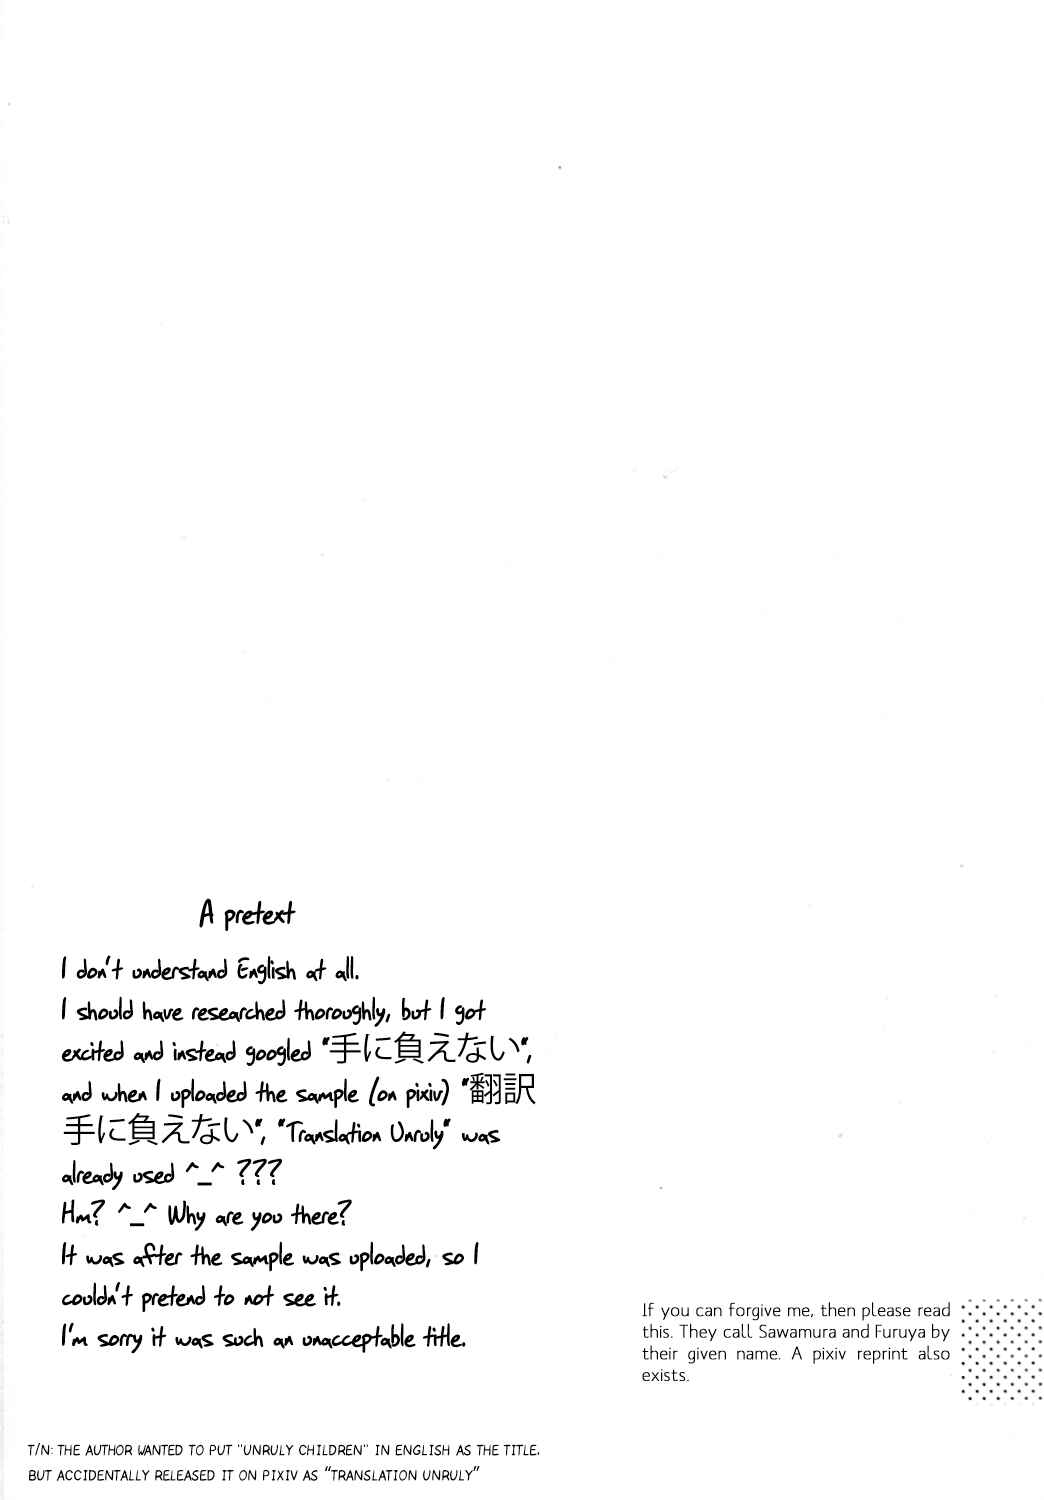 A pretext
I don't understand English at all.
I should have researched thoroughly, but I got
excited and instead googled "手に負えない",
and when I uploaded the sample (on pixiv) "翻訳
手に負えない", "Translation Unruly" was
already used ^_^ ???
Hm? ^_^ Why are you there?
It was after the sample was uploaded, so I
couldn't pretend to not see it.
I'm sorry it was such an unacceptable title.
If you can forgive me, then please read
this. They call Sawamura and Furuya by
their given name. A pixiv reprint also
exists.
T/N: THE AUTHOR WANTED TO PUT "UNRULY CHILDREN" IN ENGLISH AS THE TITLE.
BUT ACCIDENTALLY RELEASED IT ON PIXIV AS "TRANSLATION UNRULY"